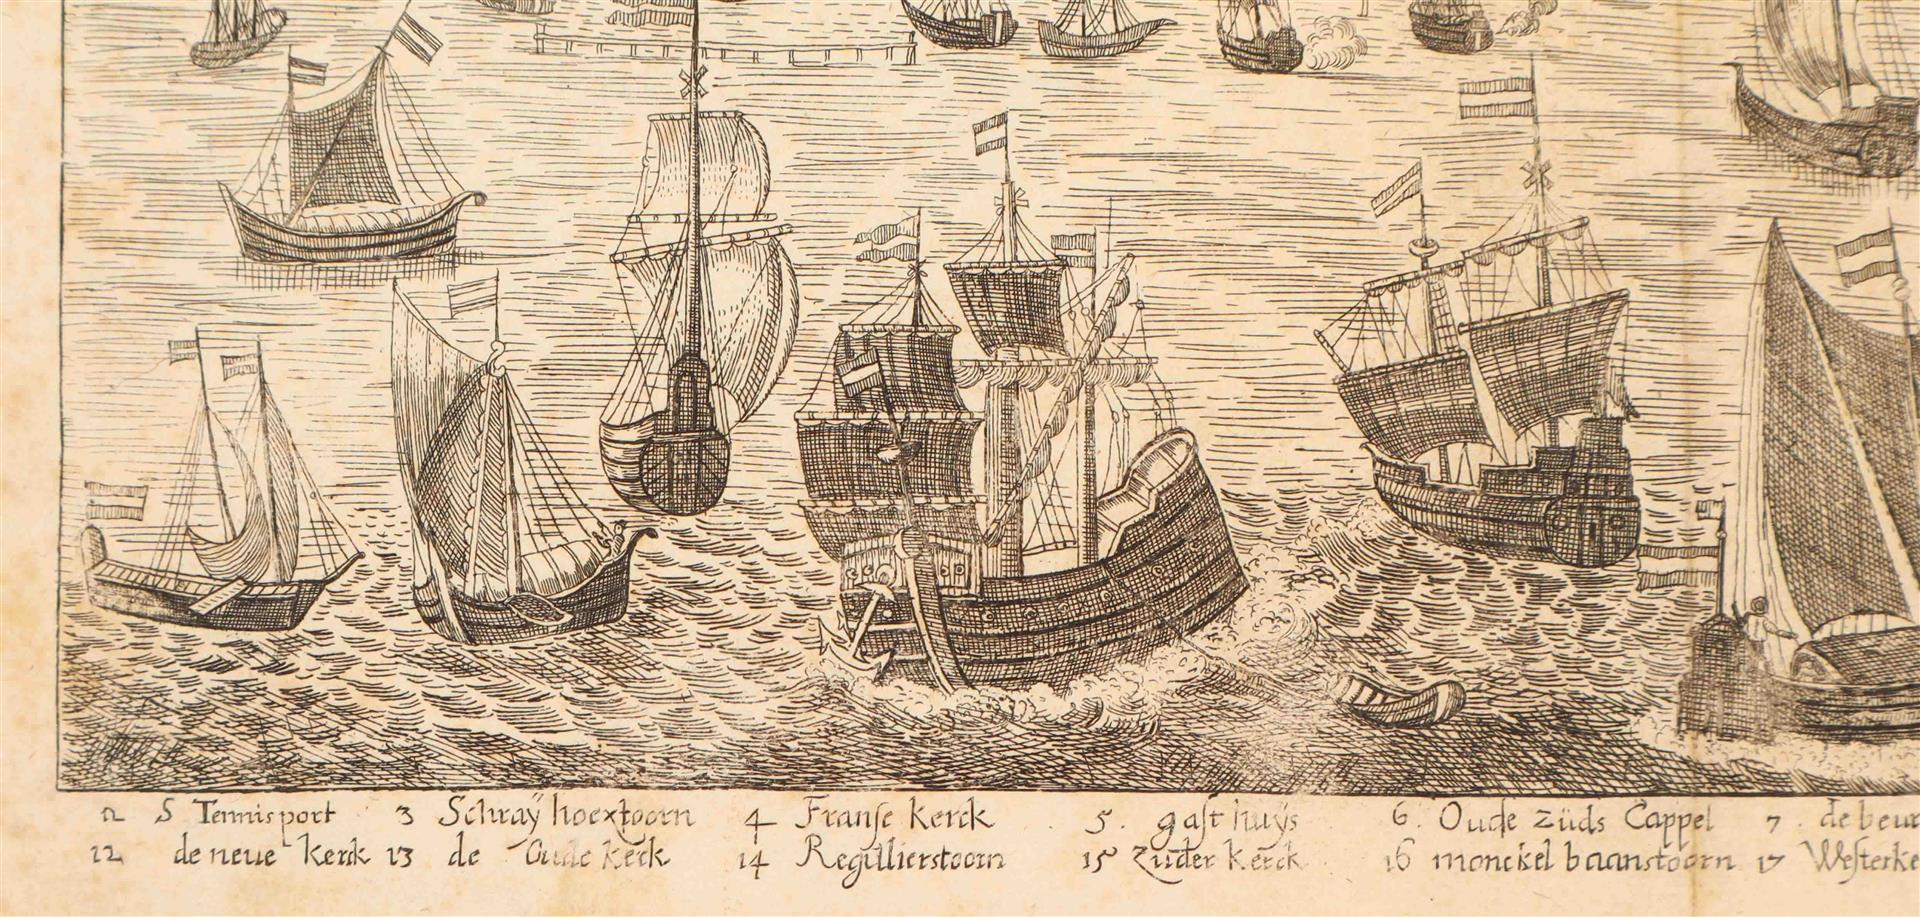 2 S Tennisport 3 Schraÿ hoextoorn 4 Franse Kerck 5. gasthuÿs 6. Oude Züds Cappel 7. de beur
12 de neue Kerck 13 de Oude Kerck 14 Regullierstoorn 15 Zuder Kerck 16 monckelbaanstoorn 17 Westerke